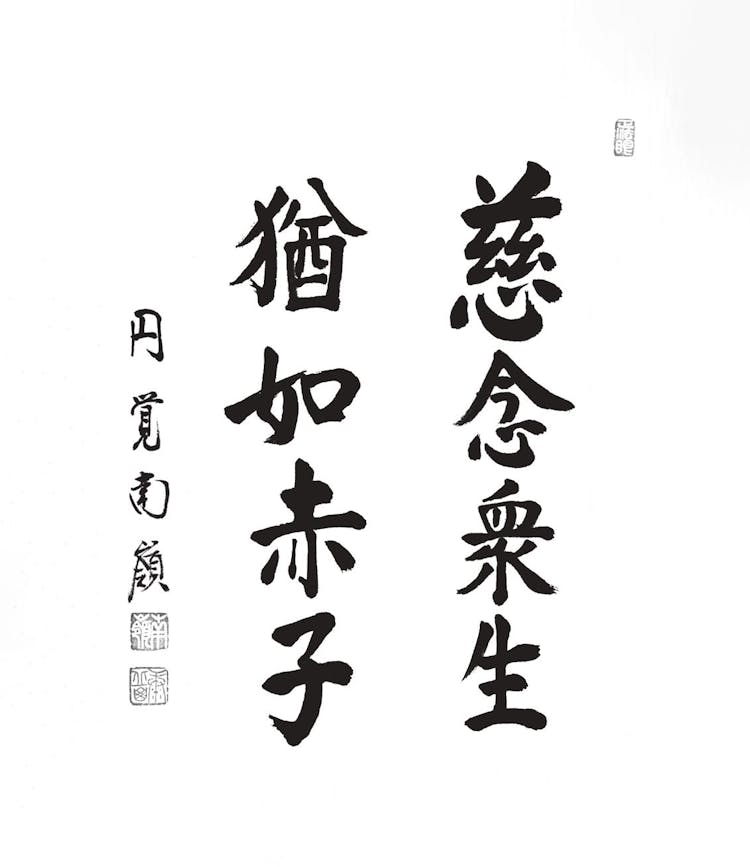 慈念衆生
猶如赤子
円覚南嶺
南嶺